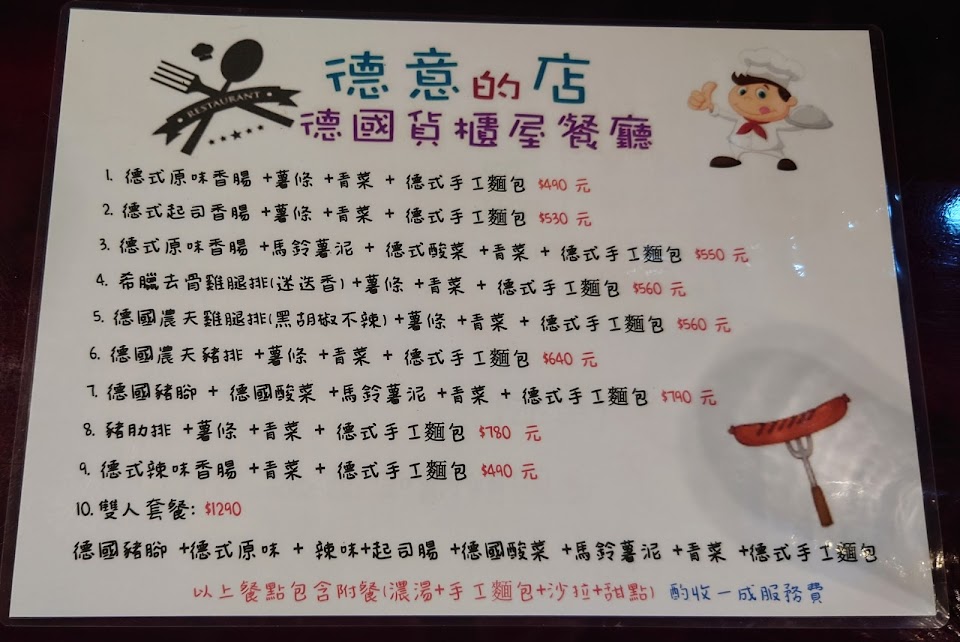 RESTAURANT
德意的店
德國貨櫃屋餐廳
1. 德式原味香腸 +薯條 +青菜 + 德式手工麵包 $490 元
2. 德式起司香腸 +薯條 +青菜 + 德式手工麵包 $530 元
3. 德式原味香腸 +馬鈴薯泥 + 德式酸菜 +青菜 + 德式手工麵包 $550 元
4. 希臘去骨雞腿排(迷迭香) +薯條 +青菜 + 德式手工麵包 $560 元
5. 德國農夫雞腿排(黑胡椒不辣) +薯條 +青菜 + 德式手工麵包 $560 元
6. 德國農夫豬排 +薯條 +青菜 + 德式手工麵包 $640 元
7. 德國豬腳 + 德國酸菜 +馬鈴薯泥 +青菜 + 德式手工麵包 $790 元
8. 豬肋排 +薯條 +青菜 + 德式手工麵包 $780 元
9. 德式辣味香腸 +青菜 + 德式手工麵包 $490 元
10. 雙人套餐: $1290
德國豬腳 +德式原味 + 辣味+起司腸 +德國酸菜 +馬鈴薯泥 +青菜 +德式手工麵包
以上餐點包含附餐(濃湯+手工麵包+沙拉+甜點) 酌收一成服務費